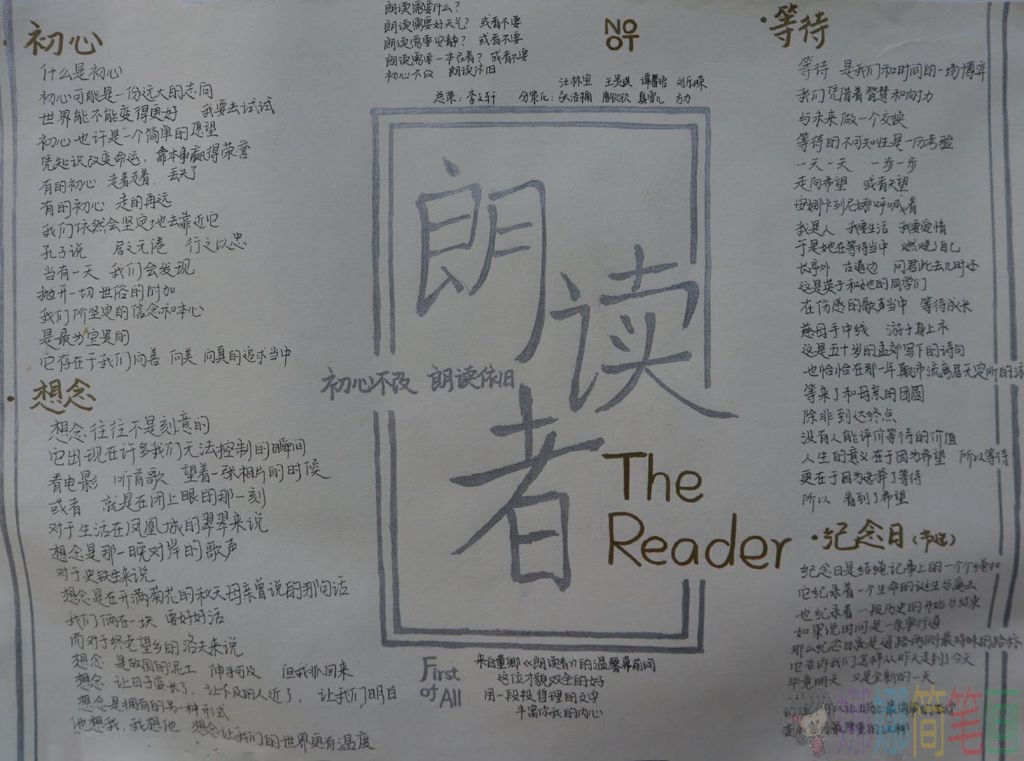 初心
什么是初心
初心可能是一份远大的志向
世界能不能变得更好 我要去试试
初心也许是一个简单的愿望
凭知识改变命运，靠本事赢得荣誉
有的初心 走着走着，丢失了
有的初心 走的再远
我们依然会坚定地去靠近它
孔子说 居之无倦 行之以忠
当有一天 我们会发现
抛开一切世俗的附加
我们所坚定的信念和本心
是最为宝贵的
它存在于我们向善 向美 向真的追求当中
想念
想念往往不是刻意的
它出现在许多我们无法控制的瞬间
看电影 听首歌 望着一张相片的时候
或者 就是在闭上眼的那一刻
对于生活在凤凰城的翠翠来说
想念是那一晚对岸的歌声
对于史铁生来说
想念是在开满菊花的秋天母亲曾说的那句话
我们俩在一块 要好好活
而对于终老望乡的洛夫来说
想念 是故国的泥土 伸手可及 但我抓回来
想念 让日子变长了，让不及的人近了， 让我们明白
想念是拥有的另一种形式
他想我，我想他 想念让我们的世界更有温度
朗读需要什么？
朗读需要好天气？ 或者不要
朗读需要安静？ 或者不要
朗读需要一本信着？ 或者不要
初心不改 朗读依旧
NO
OT
朗读者
初心不改 朗读依旧
The
Reader
First
of All
来自董卿《朗读者》的温馨幕前问
这位才貌双全的好
用一段段哲理的文字
丰富你我的内心
等待
等待 是我们和时间的一场博弈
我们凭借着智慧和耐力
与未来做一个交换
等待的不可知性是一份考验
一天一天 一步一步
走向希望 或者失望
安娜卡列尼娜呼喊着
我是人 我要生活 我要爱情
于是她在等待当中 燃烧了自己
长亭外 古道边 问君此去几时还
这是英子和她的同学们
在伤感的歌声当中 等待成长
慈母手中线 游子身上衣
这是五十岁的孟郊写下的诗句
也恰恰在那一年颠沛流离居无定所的
等来了和母亲的团圆
除非到达终点
没有人能评价等待的价值
人生的意义在于因为希望 所以等待
更在于因为选择了等待
所以 看到了希望
纪念日
纪念日是结绳记事上的一个个绳扣
它纪录着一个生命的诞生与离去
也纪录着一段历史的开始与结束
如果说时间是一条单行道
那么纪念日就是道路两侧最特殊的路标
它告诉我们怎样从昨天走到了今天
毕竟明天 又是全新的一天
娜娜简笔画